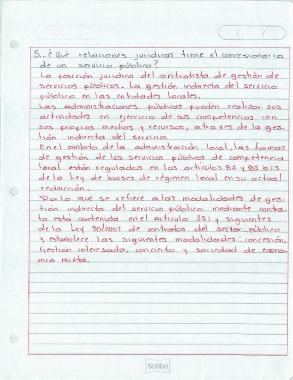 5.- ¿Qué relaciones jurídicas tiene el concesionario
de un servicio público?
La posición jurídica del contratista de gestión de
servicios públicos. La gestión indirecta del servicio
público en las entidades locales.
Las administraciones públicas pueden realizar sus
actividades en ejercicio de sus competencias con
sus propios medios y recursos, a través de la ges-
tión indirecta del servicio.
En el ámbito de la administración local, las formas
de gestión de los servicios públicos de competencia
local están reguladas en los artículos 85 y 85 bis
de la Ley de bases de régimen local en su actual
redacción.
Por lo que se refiere a las modalidades de ges-
tión indirecta del servicio público mediante contra-
to está contenida en el artículo 251 y siguientes
de la Ley 30/2007 de contratos del sector público
y establece las siguientes modalidades: concesión,
Gestión interesada, concierto y sociedad de econo-
mía mixta.
Scribe